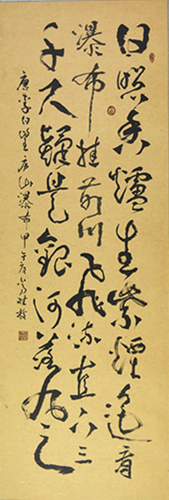 日照香爐生紫煙遙看
瀑布挂前川飛流直下三
千尺疑是銀河落九天
唐李白望庐山瀑布甲午